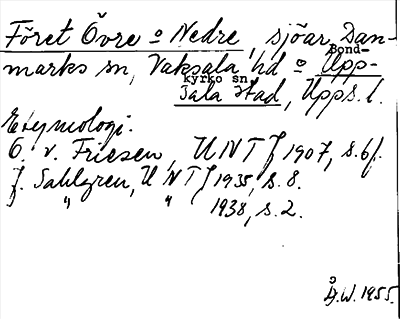 Föret Övre o Nedre, sjöar, Dan-
marks sn, Vaksala hd o Upp-
Bond-
kyrko sn
sala stad, Upps. l.
Etymologi.
O. v. Friesen, UNTf 1907, s. 6f.
J. Sahlgren, UNTf 1935, s. 8.
" " 1938, s. 2.
Å.W. 1955.